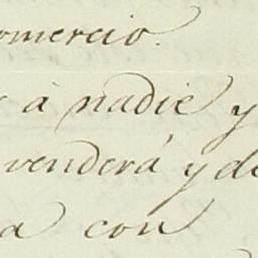 omercio.
à nadie y
venderá y de
a con